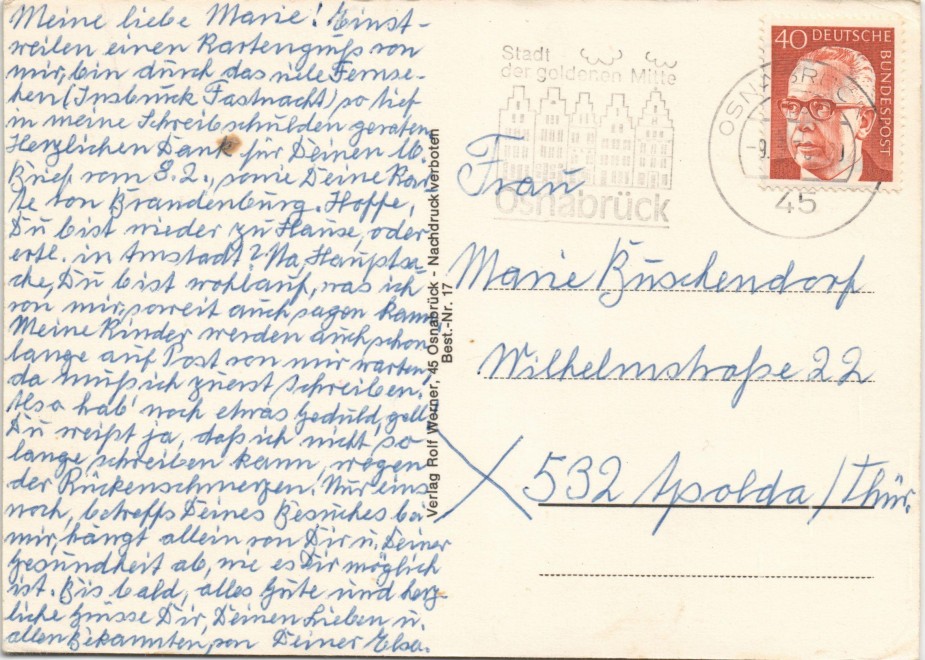 Meine liebe Marie! Einst-
weilen einen Kartengruß von
mir, bin durch das viele Fernse-
hen (Insbruck Fastnacht) so tief
in meine Schreibschulden geraten
Herzlichen Dank für Deinen lb.
Brief vom 8.2., sowie Deine Kar-
te von Brandenburg. Hoffe,
Du bist wieder zu Hause, oder
evtl. in Arnstadt? Na, Hauptsa-
che, Du bist wohlauf, was ich
von mir, soweit auch sagen kann.
Meine Kinder werden auch schon
lange auf Post von mir warten,
da muß ich zuerst schreiben.
Also hab' noch etwas Geduld, gell.
Du weißt ja, daß ich nicht so
lange schreiben kann, wegen
der Rückenschmerzen! Nur eins
noch, betreffs Deines Besuches bei
mir, hängt allein von Dir u. Deiner
Gesundheit ab, wie es Dir möglich
ist. Bis bald, alles Gute und herz-
liche Grüsse Dir, Deinen Lieben u.
allen Bekannten, von Deiner Elsa.
Verlag Rolf Werner, 45 Osnabrück - Nachdruck verboten
Best.-Nr. 17
Stadt
der goldenen Mitte
Osnabrück
OSNABRÜCK
-9.
45
40 DEUTSCHE
BUNDESPOST
Frau
Marie Buschendorf
Wilhelmstraße 22
X 532 Apolda / Thür.